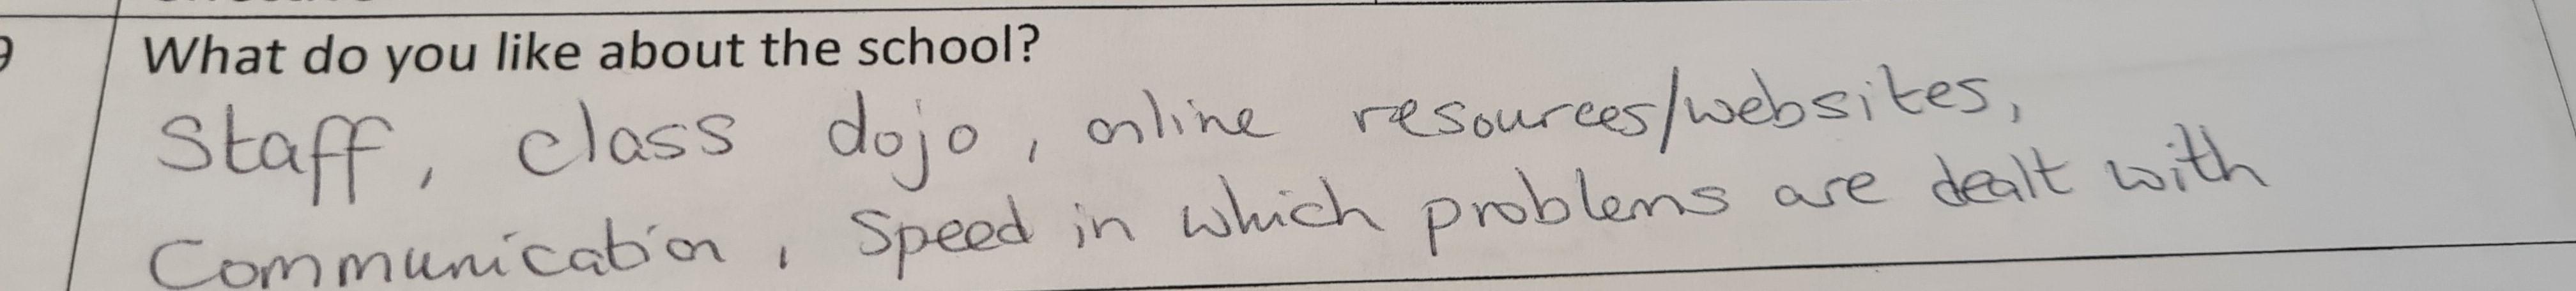 What do you like about the school?
Staff, class dojo, online resources/websites,
Communication, Speed in which problems are dealt with